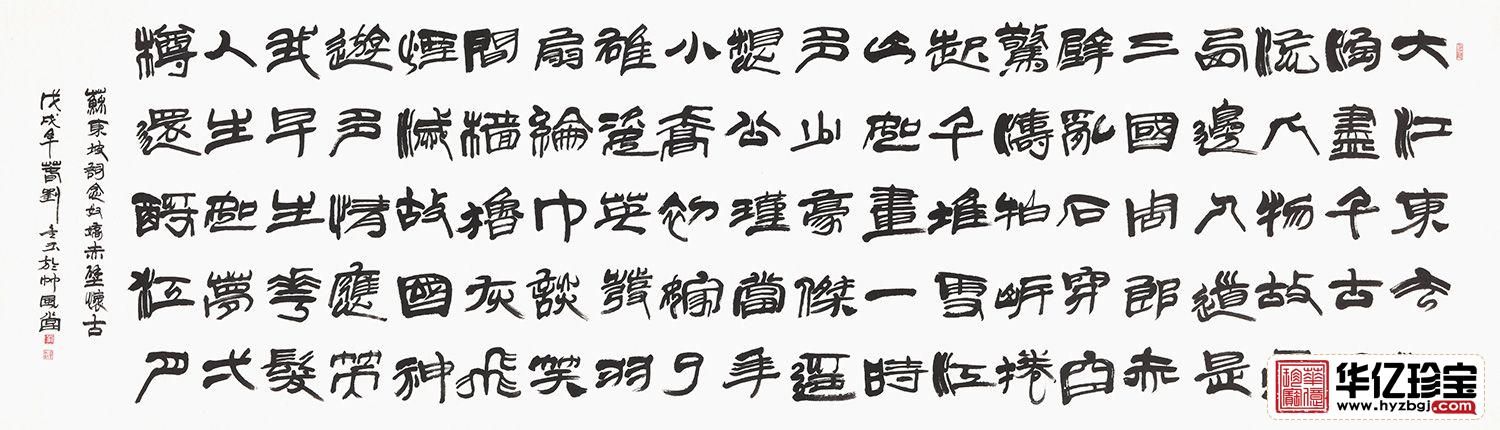 大江東去
淘盡千古
流人物故
西邊人道是
三國周郎赤
壁亂石穿空
驚濤拍岸捲
起千堆雪江
山如畫一時
多少豪傑遥
想公瑾當年
小喬初嫁了
雄姿英發羽
扇綸巾談笑
間檣櫓灰飛
煙滅故國神
遊多情應笑
我早生華髮
人生如夢弌
樽還酹江月
蘇東坡詞念奴嬌赤壁懷古
戊戌年春劉於風堂
华亿珍宝
www.hyzbgj.com